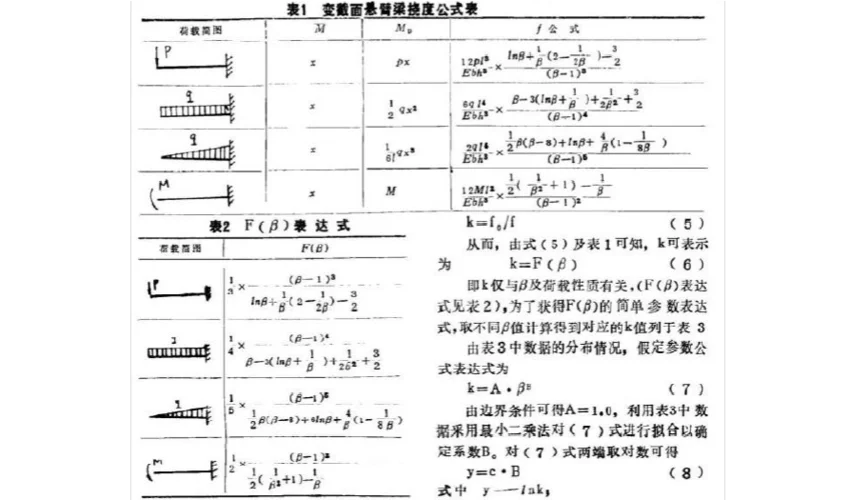 表1 变截面悬臂梁挠度公式表
荷载简图 M̄ Mₚ f 公 式
P x px 12pl³/Ebh³ × (lnβ+1/β(2-1/2β)-3/2)/(β-1)³
q x 1/2 qx² 6ql⁴/Ebh³ × (β-3(lnβ+1/β)+1/2β²+3/2)/(β-1)⁴
q x 1/6l qx³
M x M 12Ml²/Ebh³ × (1/2(1/β²+1)-1/β)/(β-1)²
表2 F(β)表 达 式
荷载简图 F(β)
P 1/3 × (β-1)³/(lnβ+1/β(2-1/2β)-3/2)
1/4 × (β-1)⁴/(β-3(lnβ+1/β)+1/2β²+3/2)
q 1/5 × (β-1)⁵/(1/2β(β-8)+6lnβ+4/β(1-1/8β))
M 1/2 × (β-1)²/(1/2(1/β²+1)-1/β)
k=f₀/f (5)
从而,由式(5)及表1可知,k可表示
为 k=F(β) (6)
即k仅与β及荷载性质有关,(F(β)表达
式见表2),为了获得F(β)的简单参数表达
式,取不同β值计算得到对应的k值列于表 3
由表3中数据的分布情况,假定参数公
式表达式为
k=A·βᴮ (7)
由边界条件可得A=1.0,利用表3中数
据采用最小二乘法对(7)式进行拟合以确
定系数B。对(7)式两端取对数可得
y=c·B (8)
式中 y——lnk,